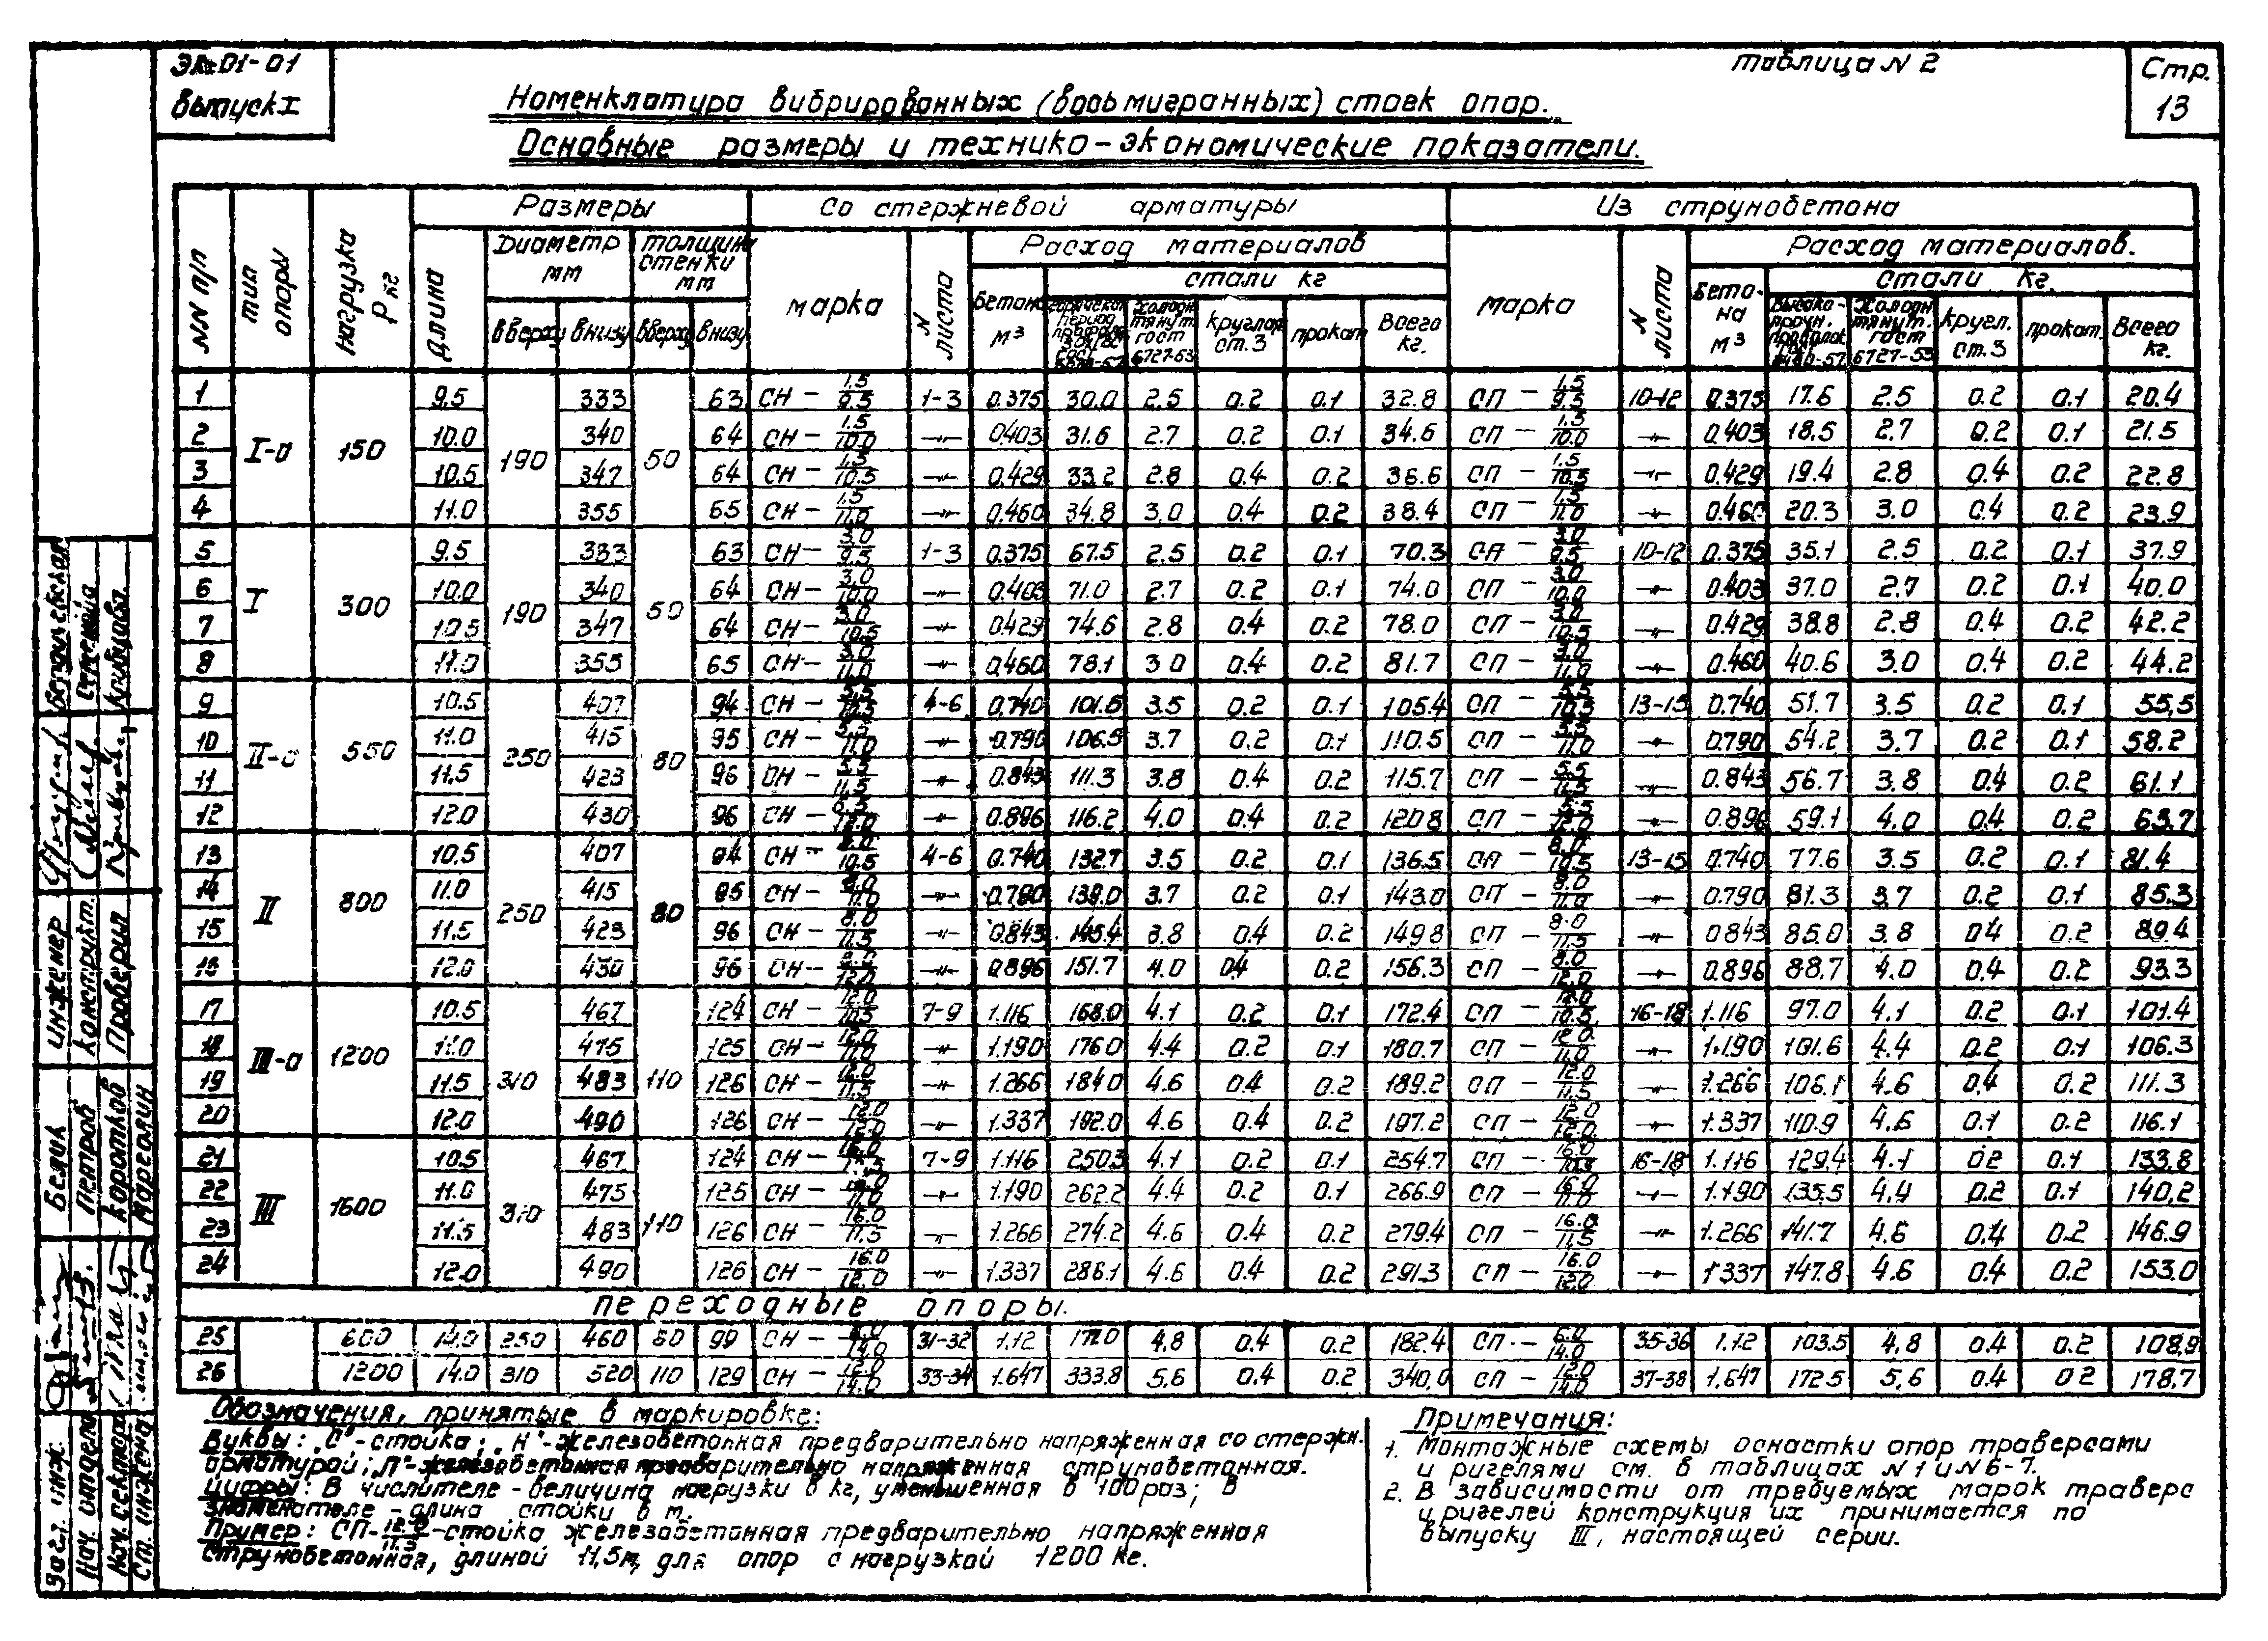 ЭЛ 01-01
Выпуск I
таблица N 2
Стр.
13
Номенклатура вибрированных (восьмигранных) стоек опор.
Основные размеры и технико-экономические показатели.
NN п/п | тип опоры | нагрузка P кг | Размеры | Со стержневой арматуры | Из струнобетона
длина | Диаметр мм | толщина стенки мм | марка | N листа | Расход материалов | марка | N листа | Расход материалов.
вверху | внизу | вверху | внизу | бетона м³ | стали кг | Бетона м³ | стали кг.
период. | Холодн. тянут. гост 6727-53 | круглая ст.3 | прокат | Всего кг. | Высокопрочн. | Холодн. тянут. гост 6727-53 | кругл. ст.3 | прокат. | Всего кг.
1 | I-а | 150 | 9.5 | 190 | 333 | 50 | 63 | СН - 1.5/9.5 | 1-3 | 0.375 | 30.0 | 2.5 | 0.2 | 0.1 | 32.8 | СП - 1.5/9.5 | 10-12 | 0.375 | 17.6 | 2.5 | 0.2 | 0.1 | 20.4
2 | 10.0 | 340 | 64 | СН - 1.5/10.0 | -"- | 0.403 | 31.6 | 2.7 | 0.2 | 0.1 | 34.6 | СП - 1.5/10.0 | -"- | 0.403 | 18.5 | 2.7 | 0.2 | 0.1 | 21.5
3 | 10.5 | 347 | 64 | СН - 1.5/10.5 | -"- | 0.429 | 33.2 | 2.8 | 0.4 | 0.2 | 36.6 | СП - 1.5/10.5 | -"- | 0.429 | 19.4 | 2.8 | 0.4 | 0.2 | 22.8
4 | 11.0 | 355 | 65 | СН - 1.5/11.0 | -"- | 0.460 | 34.8 | 3.0 | 0.4 | 0.2 | 38.4 | СП - 1.5/11.0 | -"- | 0.460 | 20.3 | 3.0 | 0.4 | 0.2 | 23.9
5 | I | 300 | 9.5 | 190 | 333 | 50 | 63 | СН - 3.0/9.5 | 1-3 | 0.375 | 67.5 | 2.5 | 0.2 | 0.1 | 70.3 | СП - 3.0/9.5 | 10-12 | 0.375 | 35.1 | 2.5 | 0.2 | 0.1 | 37.9
6 | 10.0 | 340 | 64 | СН - 3.0/10.0 | -"- | 0.403 | 71.0 | 2.7 | 0.2 | 0.1 | 74.0 | СП - 3.0/10.0 | -"- | 0.403 | 37.0 | 2.7 | 0.2 | 0.1 | 40.0
7 | 10.5 | 347 | 64 | СН - 3.0/10.5 | -"- | 0.429 | 74.6 | 2.8 | 0.4 | 0.2 | 78.0 | СП - 3.0/10.5 | -"- | 0.429 | 38.8 | 2.8 | 0.4 | 0.2 | 42.2
8 | 11.0 | 355 | 65 | СН - 3.0/11.0 | -"- | 0.460 | 78.1 | 3.0 | 0.4 | 0.2 | 81.7 | СП - 3.0/11.0 | -"- | 0.460 | 40.6 | 3.0 | 0.4 | 0.2 | 44.2
9 | II-а | 550 | 10.5 | 250 | 407 | 80 | 94 | СН - 5.5/10.5 | 4-6 | 0.740 | 101.6 | 3.5 | 0.2 | 0.1 | 105.4 | СП - 5.5/10.5 | 13-15 | 0.740 | 51.7 | 3.5 | 0.2 | 0.1 | 55.5
10 | 11.0 | 415 | 95 | СН - 5.5/11.0 | -"- | 0.790 | 106.5 | 3.7 | 0.2 | 0.1 | 110.5 | СП - 5.5/11.0 | -"- | 0.790 | 54.2 | 3.7 | 0.2 | 0.1 | 58.2
11 | 11.5 | 423 | 96 | СН - 5.5/11.5 | -"- | 0.843 | 111.3 | 3.8 | 0.4 | 0.2 | 115.7 | СП - 5.5/11.5 | -"- | 0.843 | 56.7 | 3.8 | 0.4 | 0.2 | 61.1
12 | 12.0 | 430 | 96 | СН - 5.5/12.0 | -"- | 0.896 | 116.2 | 4.0 | 0.4 | 0.2 | 120.8 | СП - 5.5/12.0 | -"- | 0.896 | 59.1 | 4.0 | 0.4 | 0.2 | 63.7
13 | II | 800 | 10.5 | 250 | 407 | 80 | 94 | СН - 8.0/10.5 | 4-6 | 0.740 | 132.7 | 3.5 | 0.2 | 0.1 | 136.5 | СП - 8.0/10.5 | 13-15 | 0.740 | 77.6 | 3.5 | 0.2 | 0.1 | 81.4
14 | 11.0 | 415 | 95 | СН - 8.0/11.0 | -"- | 0.790 | 139.0 | 3.7 | 0.2 | 0.1 | 143.0 | СП - 8.0/11.0 | -"- | 0.790 | 81.3 | 3.7 | 0.2 | 0.1 | 85.3
15 | 11.5 | 423 | 96 | СН - 8.0/11.5 | -"- | 0.843 | 145.4 | 3.8 | 0.4 | 0.2 | 149.8 | СП - 8.0/11.5 | -"- | 0.843 | 85.0 | 3.8 | 0.4 | 0.2 | 89.4
16 | 12.0 | 430 | 96 | СН - 8.0/12.0 | -"- | 0.896 | 151.7 | 4.0 | 0.4 | 0.2 | 156.3 | СП - 8.0/12.0 | -"- | 0.896 | 88.7 | 4.0 | 0.4 | 0.2 | 93.3
17 | III-а | 1200 | 10.5 | 310 | 467 | 110 | 124 | СН - 12.0/10.5 | 7-9 | 1.116 | 168.0 | 4.1 | 0.2 | 0.1 | 172.4 | СП - 12.0/10.5 | 16-18 | 1.116 | 97.0 | 4.1 | 0.2 | 0.1 | 101.4
18 | 11.0 | 475 | 125 | СН - 12.0/11.0 | -"- | 1.190 | 176.0 | 4.4 | 0.2 | 0.1 | 180.7 | СП - 12.0/11.0 | -"- | 1.190 | 101.6 | 4.4 | 0.2 | 0.1 | 106.3
19 | 11.5 | 483 | 126 | СН - 12.0/11.5 | -"- | 1.266 | 184.0 | 4.6 | 0.4 | 0.2 | 189.2 | СП - 12.0/11.5 | -"- | 1.266 | 106.1 | 4.6 | 0.4 | 0.2 | 111.3
20 | 12.0 | 490 | 126 | СН - 12.0/12.0 | -"- | 1.337 | 192.0 | 4.6 | 0.4 | 0.2 | 197.2 | СП - 12.0/12.0 | -"- | 1.337 | 110.9 | 4.6 | 0.1 | 0.2 | 116.1
21 | III | 1600 | 10.5 | 310 | 467 | 110 | 124 | СН - 16.0/10.5 | 7-9 | 1.116 | 250.3 | 4.1 | 0.2 | 0.1 | 254.7 | СП - 16.0/10.5 | 16-18 | 1.116 | 129.4 | 4.1 | 0.2 | 0.1 | 133.8
22 | 11.0 | 475 | 125 | СН - 16.0/11.0 | -"- | 1.190 | 262.2 | 4.4 | 0.2 | 0.1 | 266.9 | СП - 16.0/11.0 | -"- | 1.190 | 135.5 | 4.4 | 0.2 | 0.1 | 140.2
23 | 11.5 | 483 | 126 | СН - 16.0/11.5 | -"- | 1.266 | 274.2 | 4.6 | 0.4 | 0.2 | 279.4 | СП - 16.0/11.5 | -"- | 1.266 | 141.7 | 4.6 | 0.4 | 0.2 | 146.9
24 | 12.0 | 490 | 126 | СН - 16.0/12.0 | -"- | 1.337 | 286.1 | 4.6 | 0.4 | 0.2 | 291.3 | СП - 16.0/12.0 | -"- | 1.337 | 147.8 | 4.6 | 0.4 | 0.2 | 153.0
переходные опоры.
25 | 600 | 14.0 | 250 | 460 | 80 | 99 | СН - 6.0/14.0 | 31-32 | 1.12 | 177.0 | 4.8 | 0.4 | 0.2 | 182.4 | СП - 6.0/14.0 | 35-36 | 1.12 | 103.5 | 4.8 | 0.4 | 0.2 | 108.9
26 | 1200 | 14.0 | 310 | 520 | 110 | 129 | СН - 12.0/14.0 | 33-34 | 1.647 | 333.8 | 5.6 | 0.4 | 0.2 | 340.0 | СП - 12.0/14.0 | 37-38 | 1.647 | 172.5 | 5.6 | 0.4 | 0.2 | 178.7
Обозначения, принятые в маркировке:
Буквы: „С"-стойка; „Н"-железобетонная предварительно напряженная со стержн.
арматурой; „П"-железобетонная предварительно напряженная струнобетонная.
Цифры: В числителе - величина нагрузки в кг, уменьшенная в 100 раз; В
знаменателе - длина стойки в м.
Пример: СП-12.0/11.5-стойка железобетонная предварительно напряженная
струнобетонная, длиной 11,5м, для опор с нагрузкой 1200 кг.
Примечания:
1. Монтажные схемы оснастки опор траверсами
и ригелями см. в таблицах N 1 и N 6-7.
2. В зависимости от требуемых марок траверс
и ригелей конструкция их принимается по
выпуску III, настоящей серии.
инженер
конструкт.
Проверил
Белик
Петров
Коротков
Марголин
Нач. отдела
Нач. сектора
Ст. инжен.